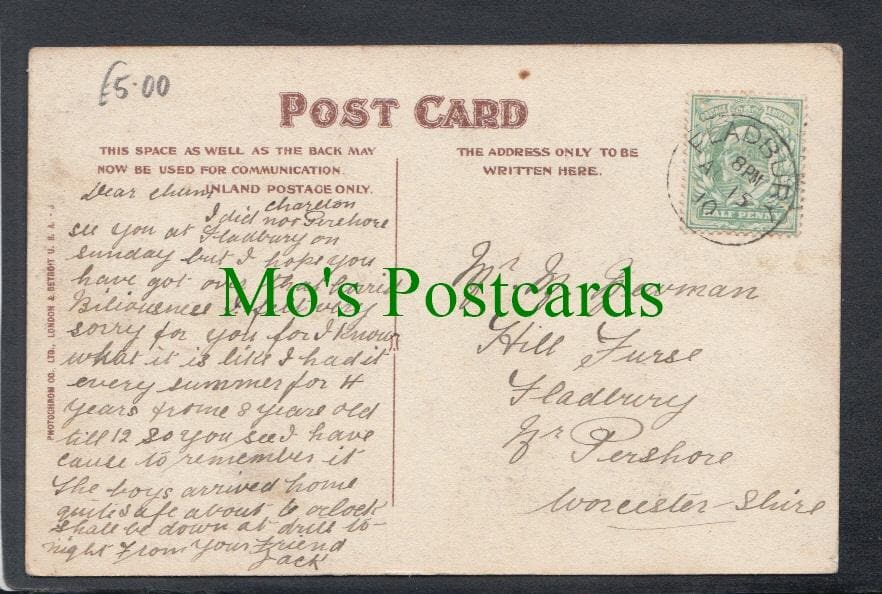 £5.00
POST CARD
THIS SPACE AS WELL AS THE BACK MAY
NOW BE USED FOR COMMUNICATION.
INLAND POSTAGE ONLY.
THE ADDRESS ONLY TO BE
WRITTEN HERE.
LADBURY
8 PM
15
10
HALF PENNY
PHOTOCHROM CO. LTD., LONDON & DETROIT U.S.A.
Dear chum
I did not
see you at Fladbury on
sunday but I hope you
have got over that horrid
sorry for you for I know
what it is like I had it
every summer for 4
years frome 8 years old
till 12 so you see I have
cause to remember it
The boys arrived home
quite safe about 6 oclock
shale be down at drill to-
night From Your Friend
Jack
Mo's Postcards
Mr
Hill Furse
Fladbury
Nr Pershore
Worcester-Shire